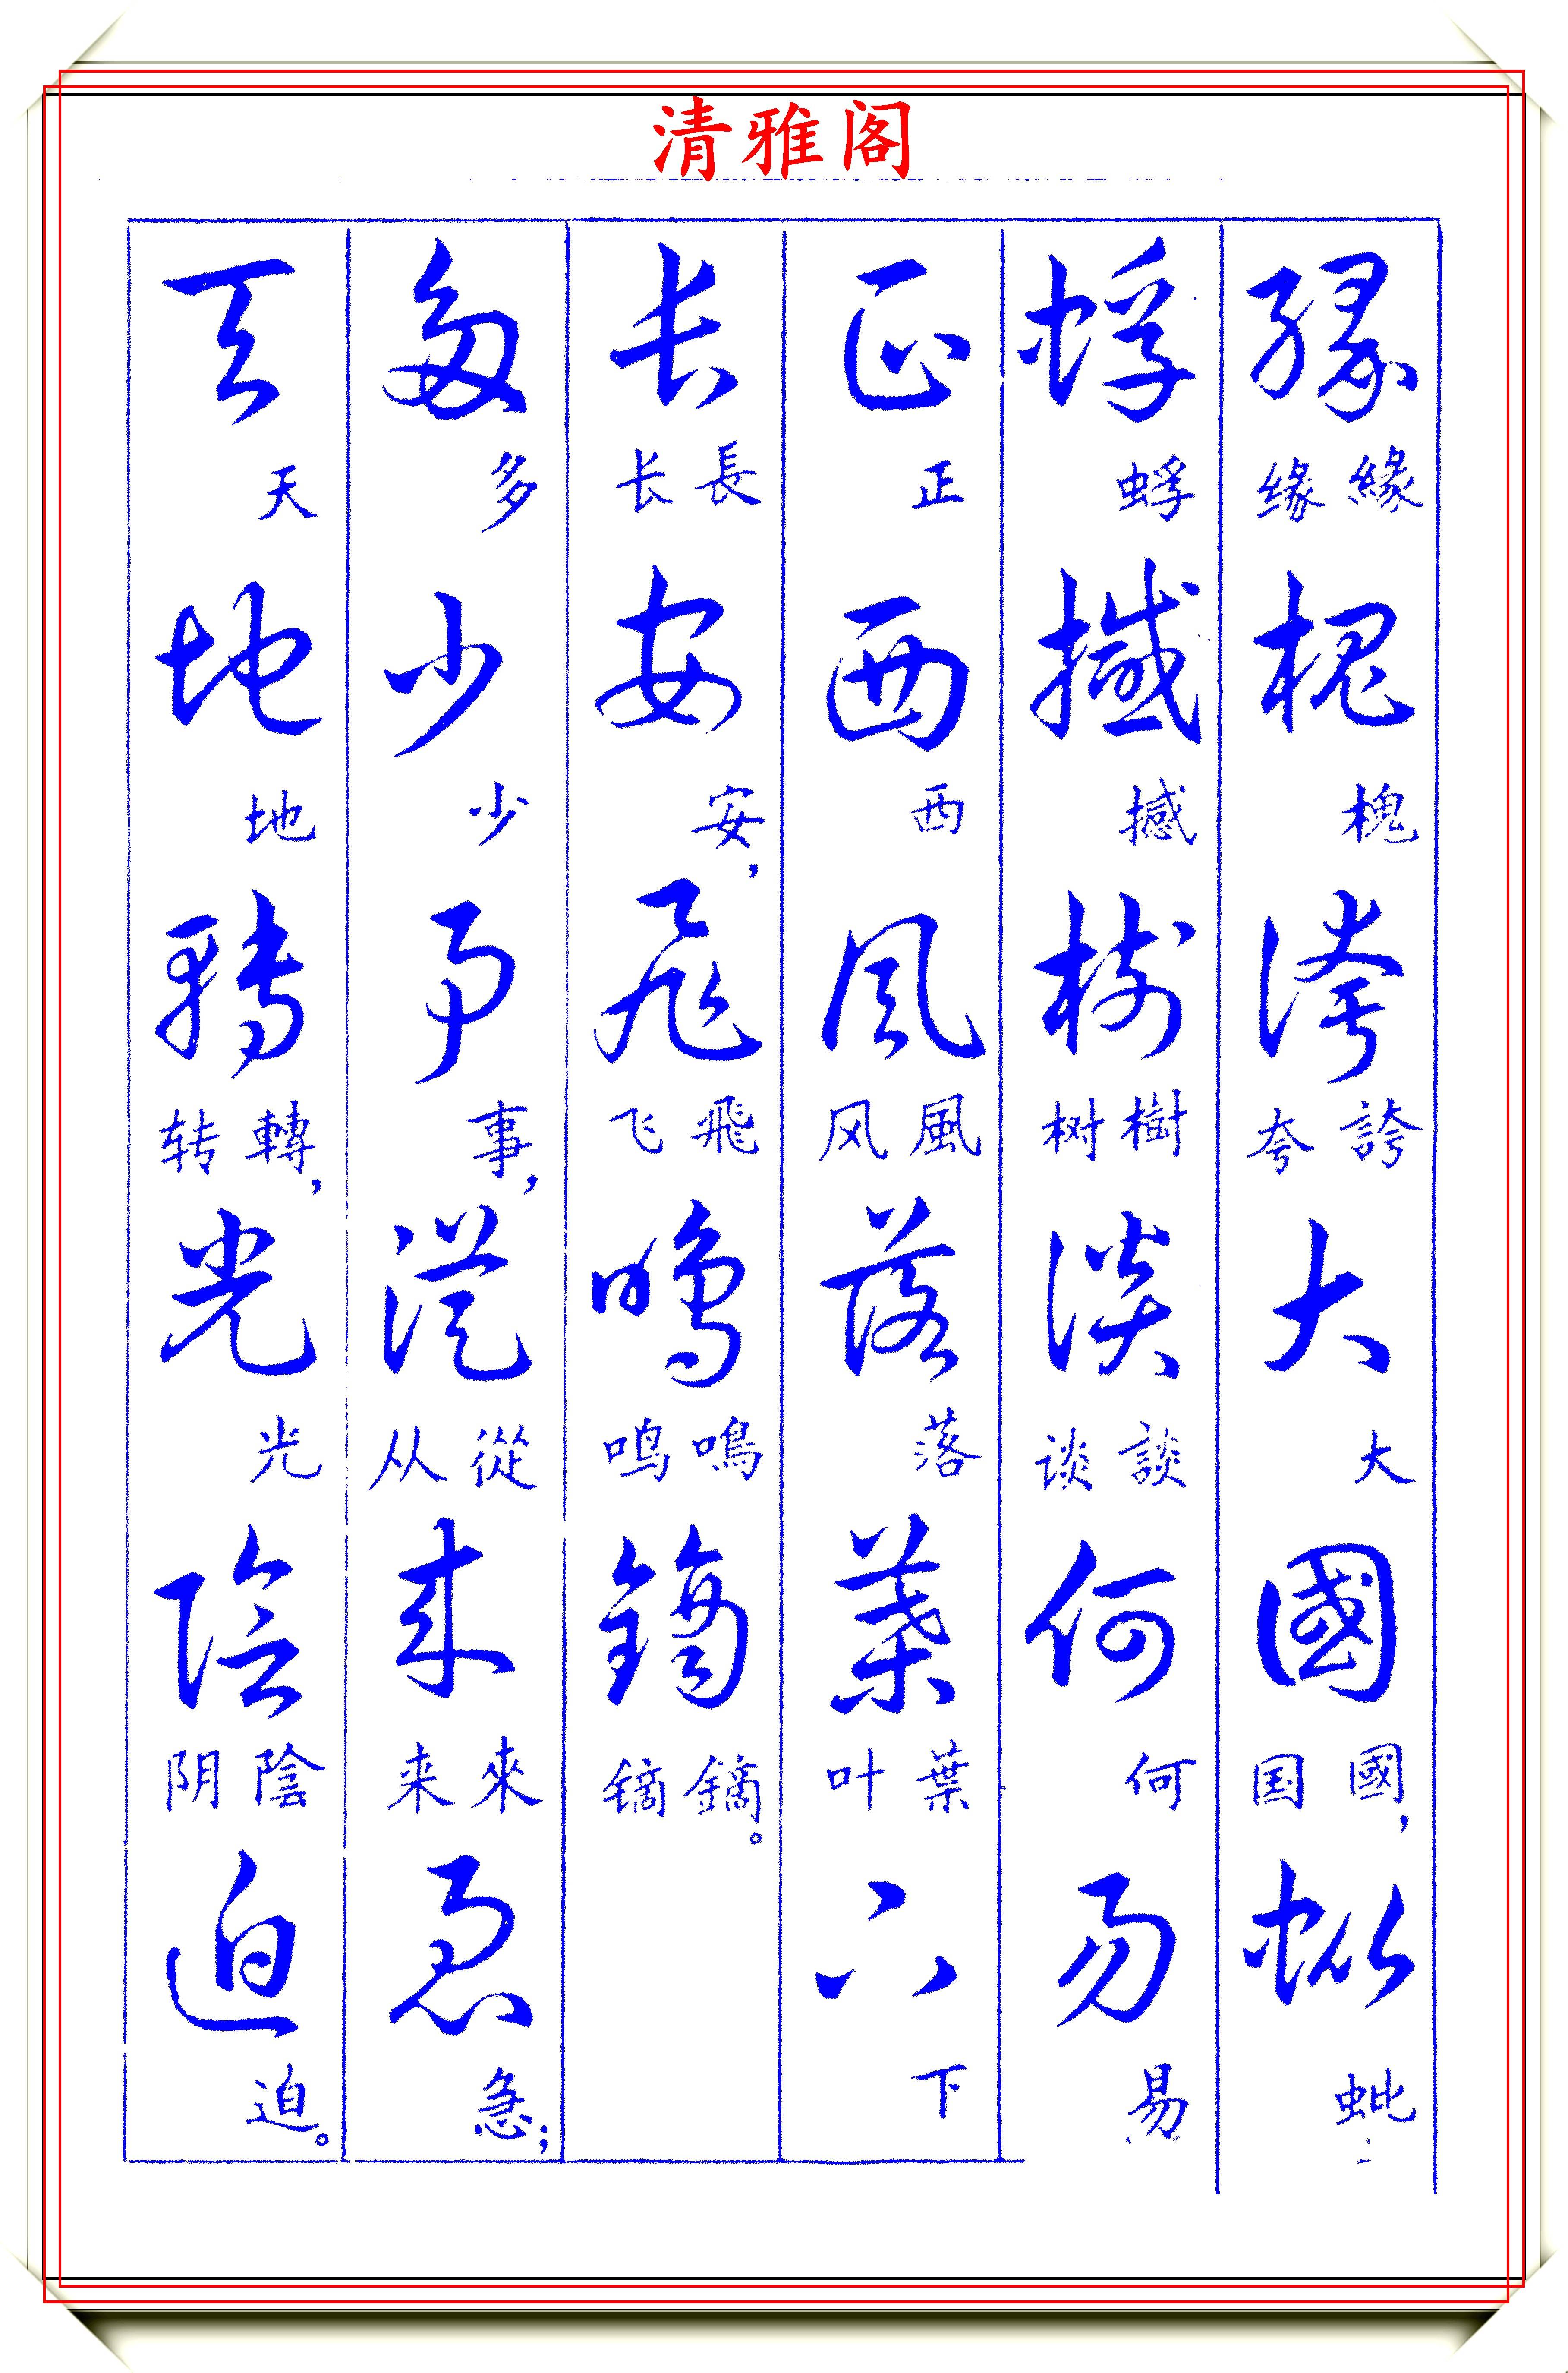 清雅阁
緣 緣 缘 槐 槐 誇 誇 夸 大 大 國 國， 国 蚍 蚍
蜉 蜉 撼 撼 樹 樹 树 談 談 谈 何 何 易 易
正 正 西 西 風 風 风 落 落 葉 葉 叶 下 下
長 長 长 安 安， 飛 飛 飞 鳴 鳴 鸣 鏑 鏑。 镝
多 多 少 少 事 事， 從 從 从 來 來 来 急 急；
天 天 地 地 轉 轉， 转 光 光 陰 陰 阴 迫 迫。